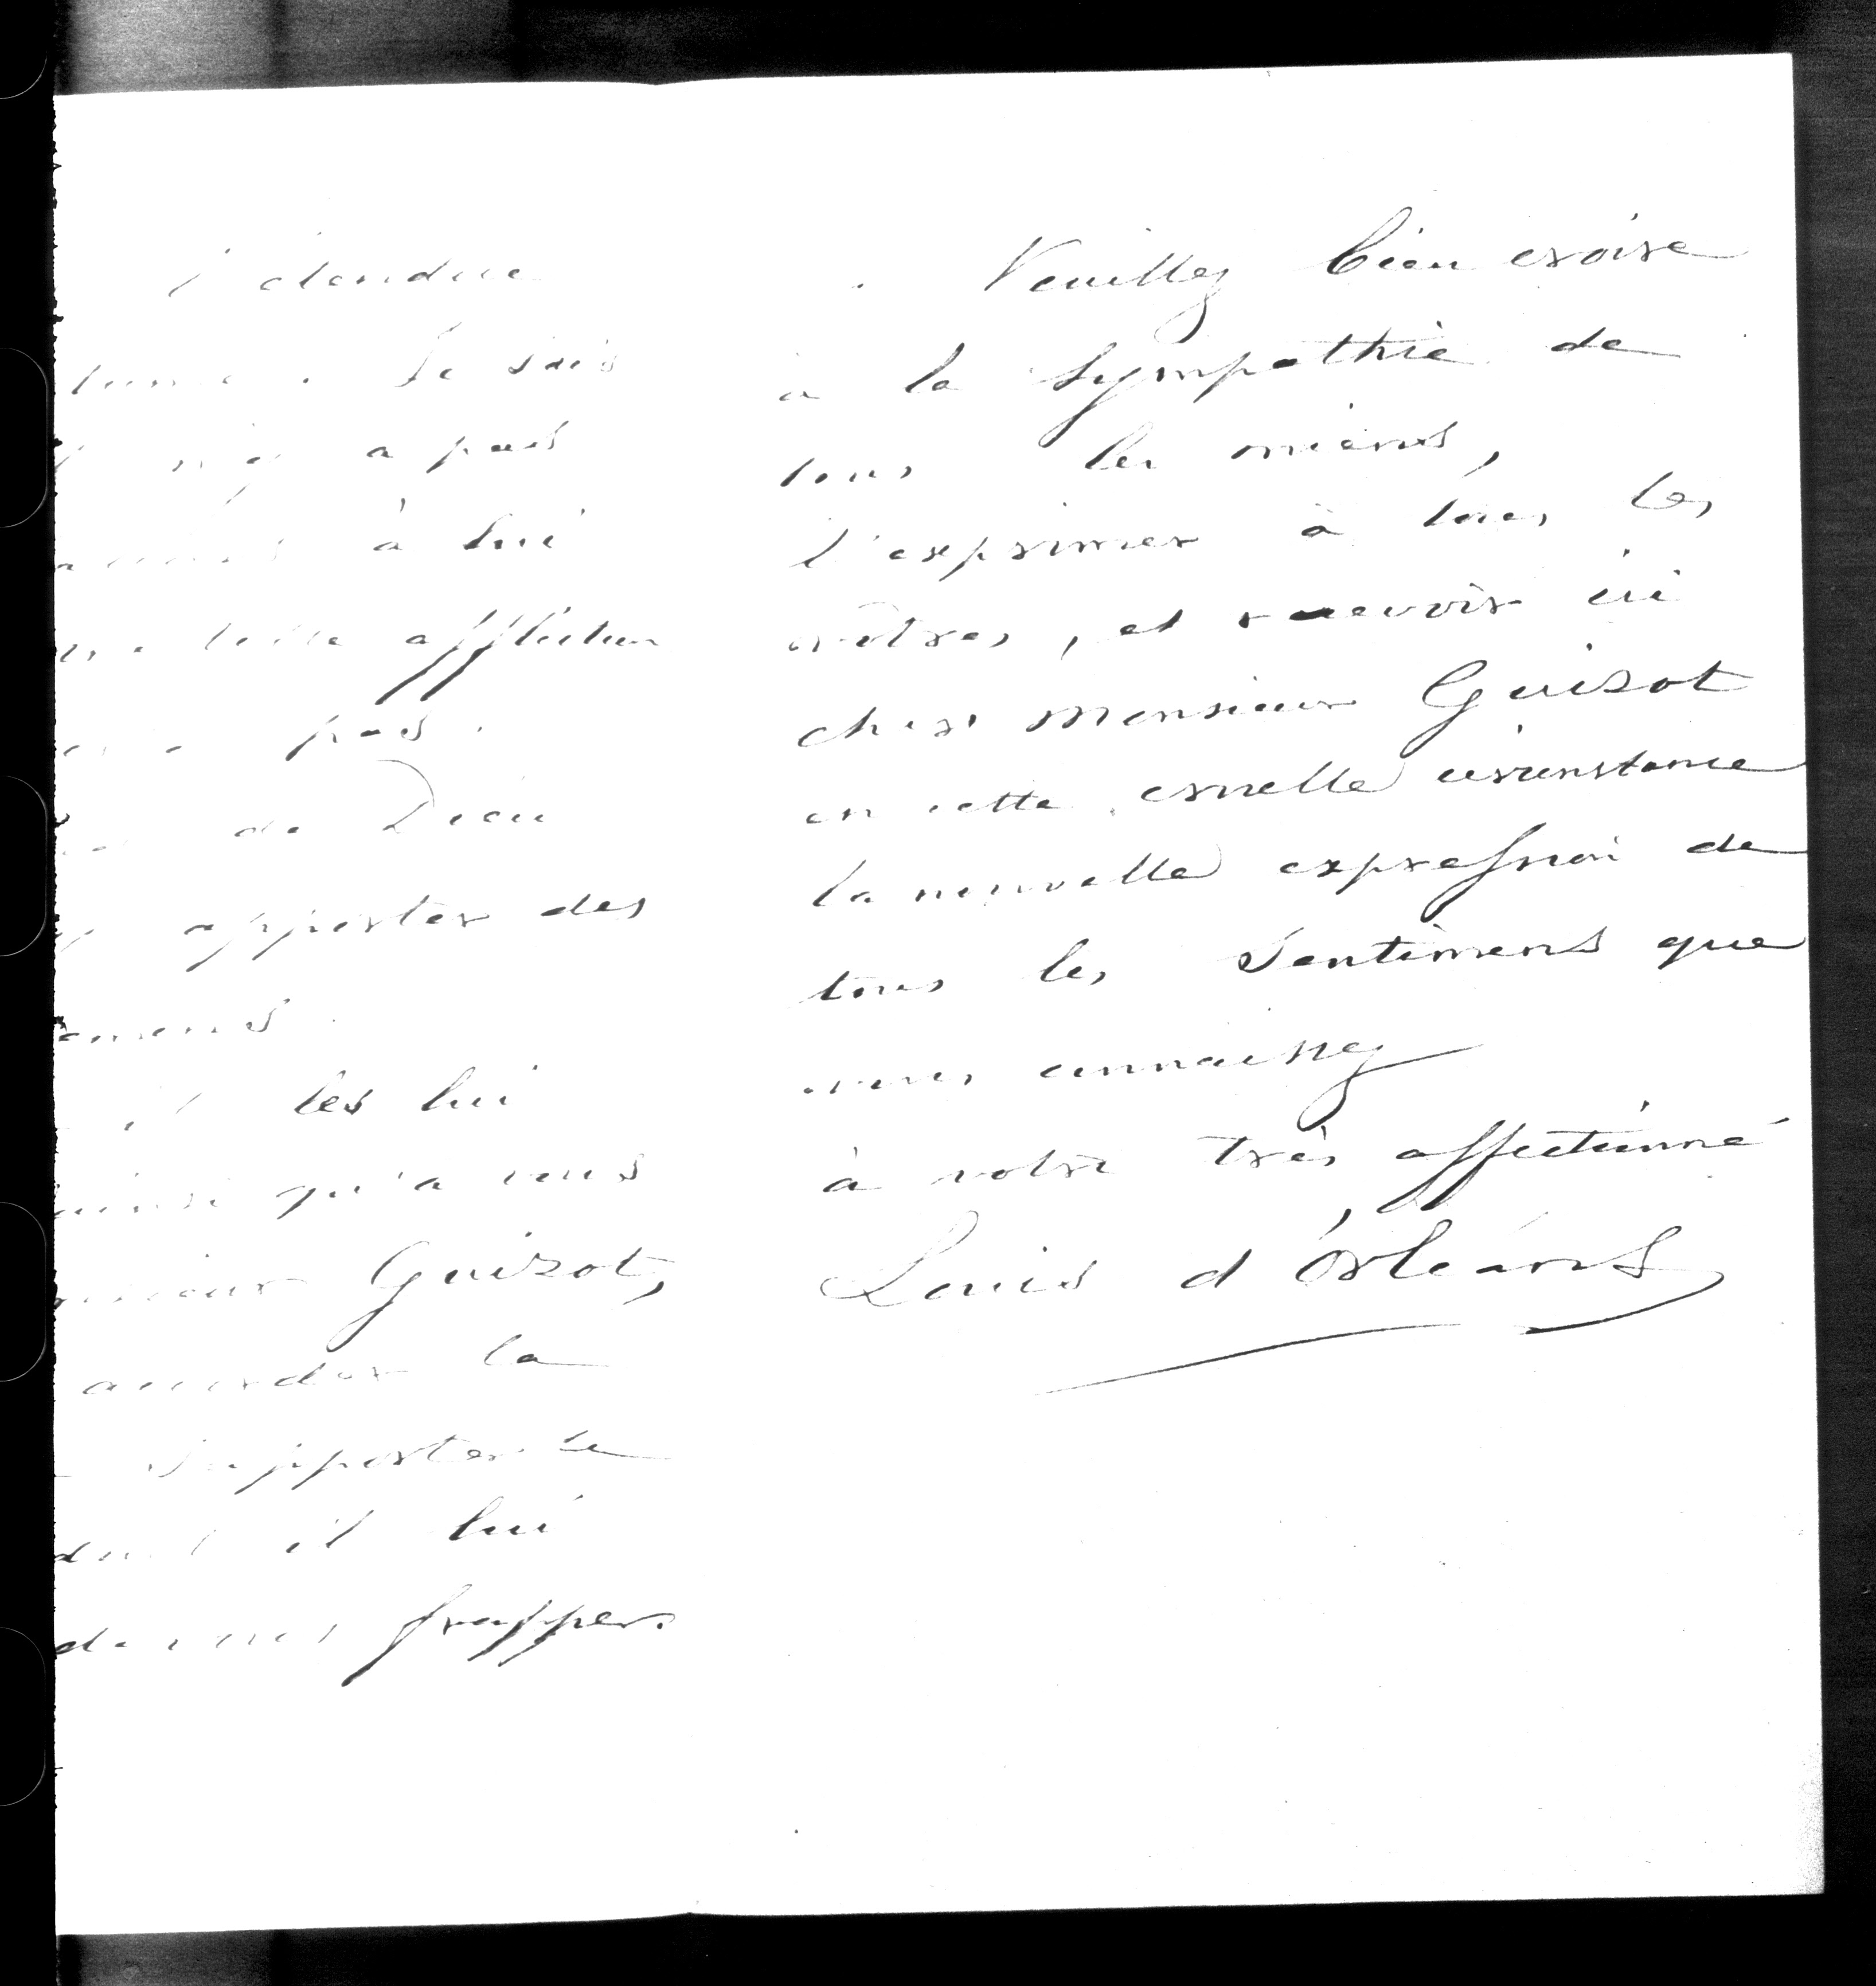 l'étendue
Je sais
n'y a pas
à lui
telle affliction
pas.
de Dieu
apporter des
les lui
ainsi qu'à vous
Guizot,
accorder la
supporter le
dont il lui
de vous frapper.
Veuillez bien croire
à la sympathie de
tous les miens,
l'exprimer à tous les
vôtres, et recevoir ici
cher Monsieur Guizot
en cette cruelle circonstance
la nouvelle expression de
tous les sentimens que
vous connaissez
à votre très affectionné
Louis d'Orléans